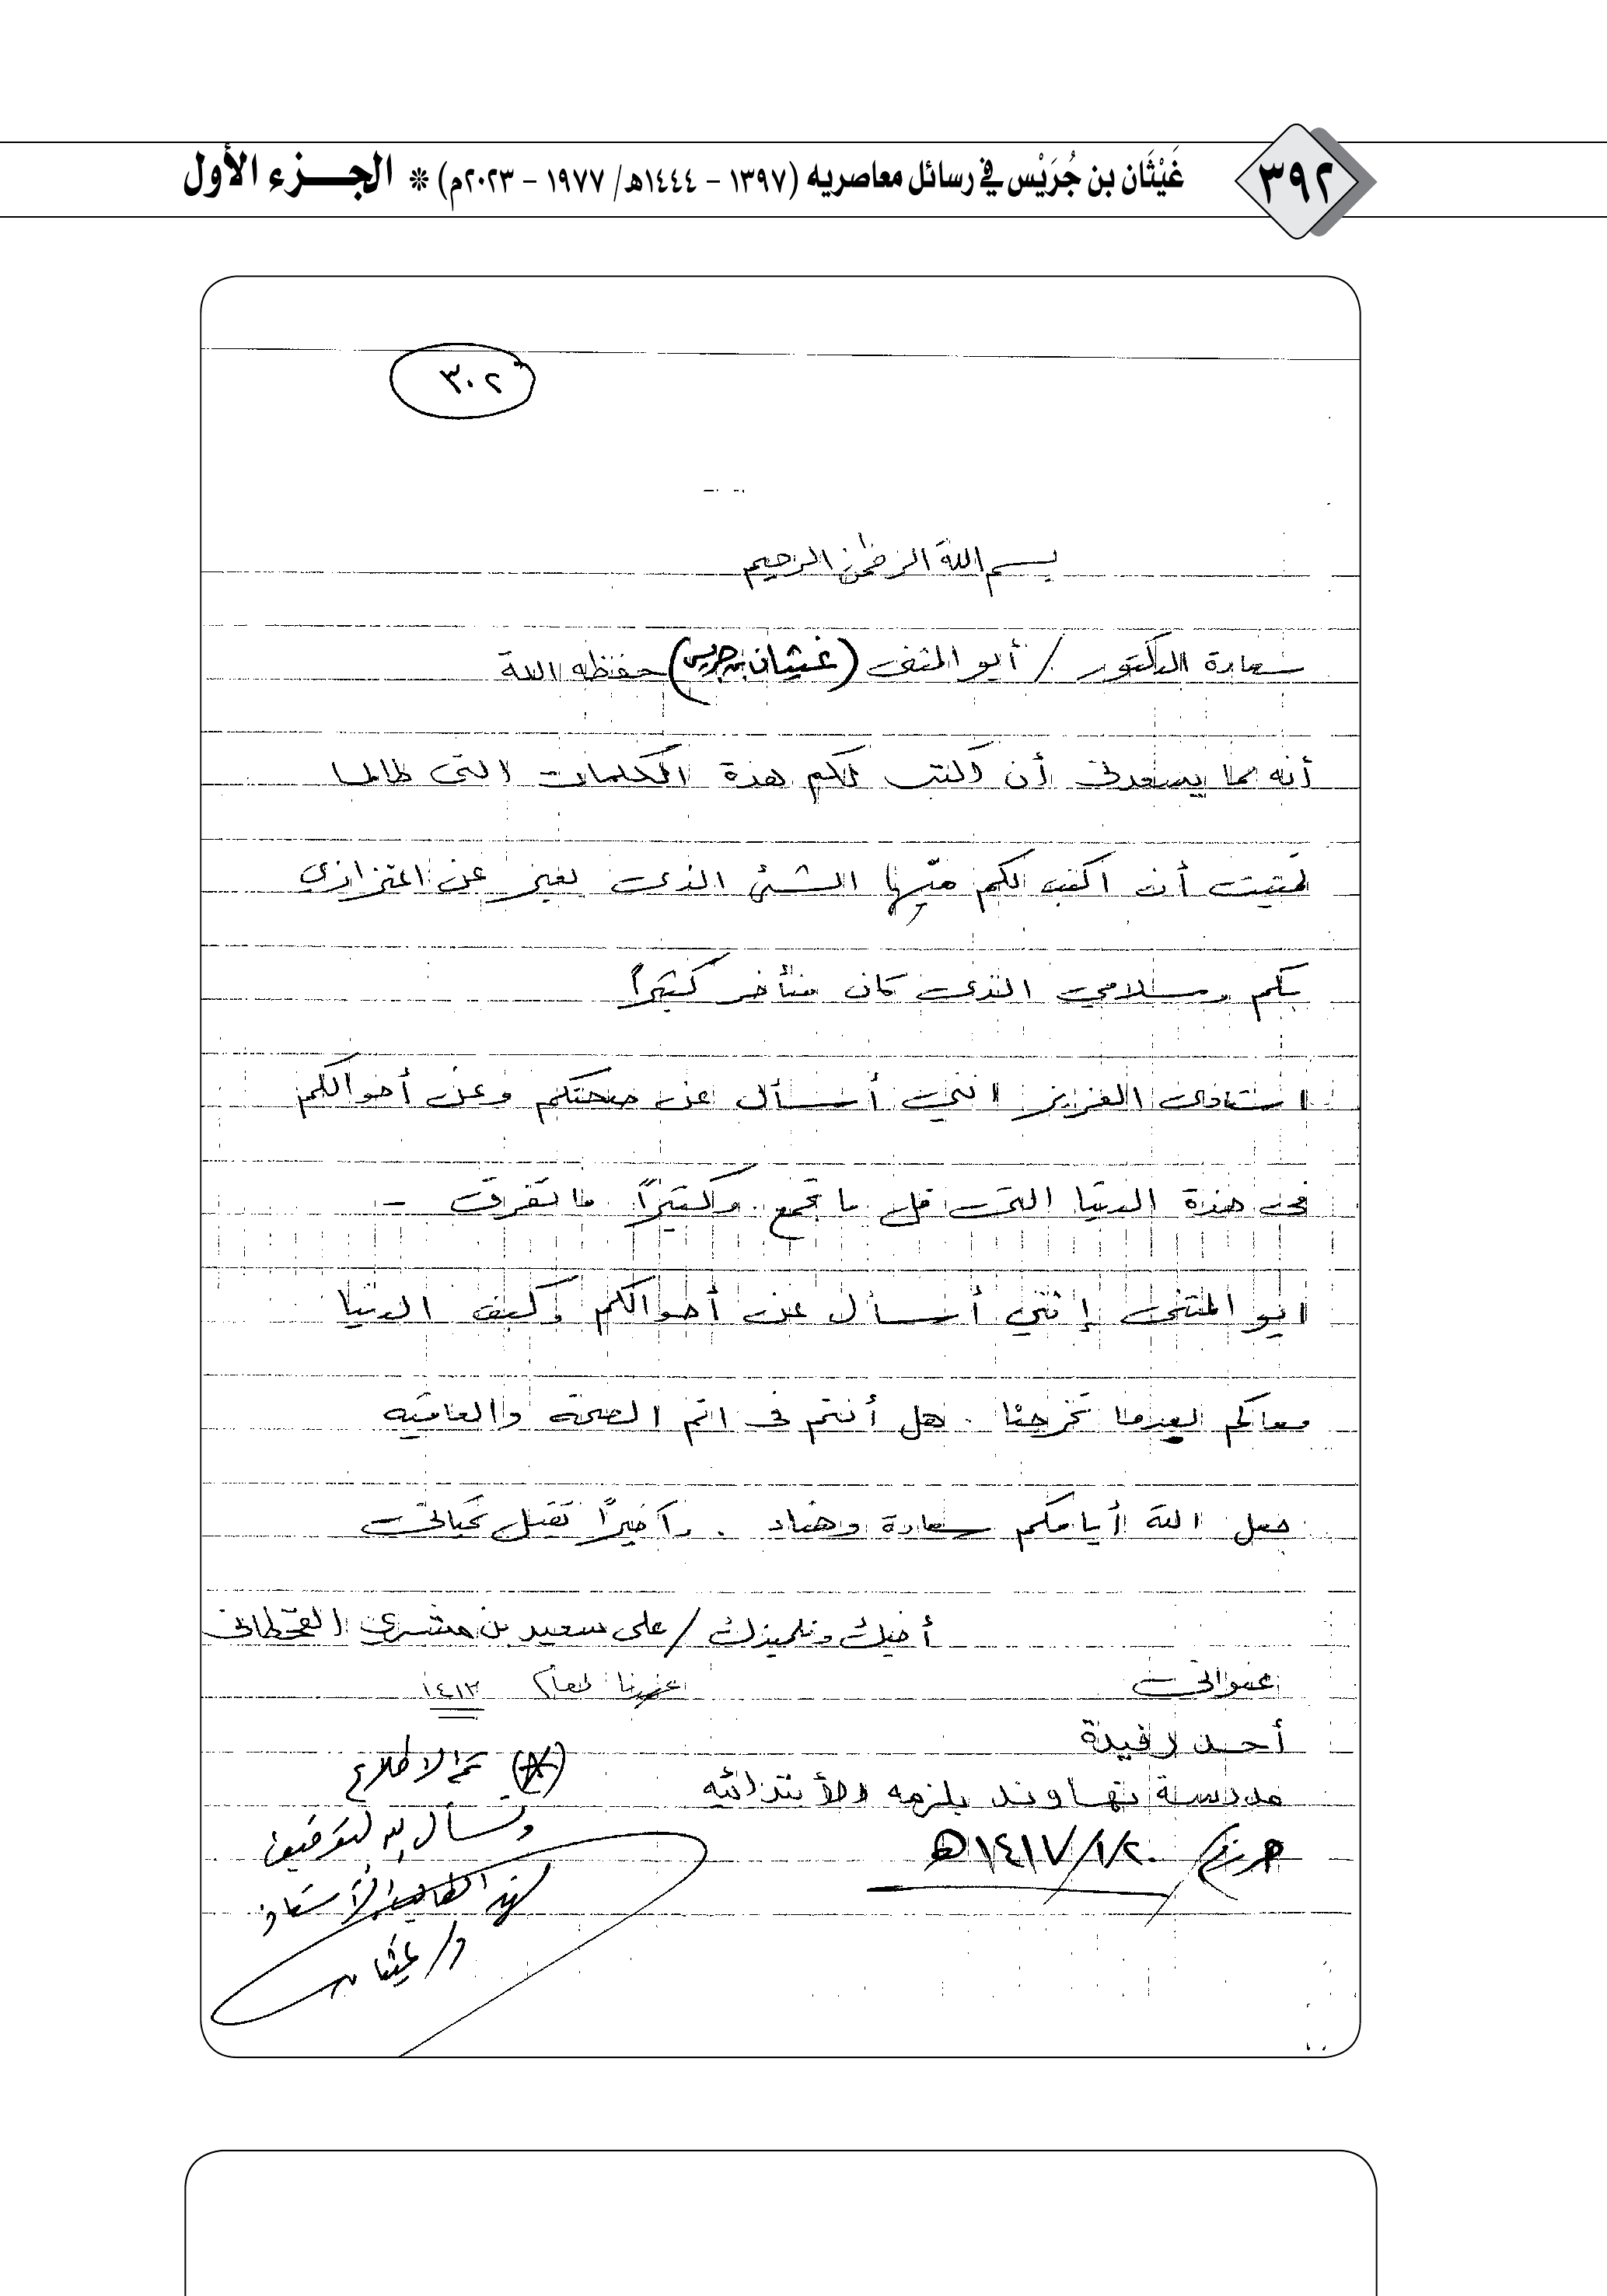 ٣٩٢
غَيْثَان بن جُرَيْس في رسائل معاصريه (١٣٩٧ - ١٤٤٤هـ/ ١٩٧٧ - ٢٠٢٣م) * الجـــزء الأول
٣٠٢
بسم الله الرحمن الرحيم
سعادة الدكتور / أبو المثنى (غيثان بن جريس) حفظه الله
أنه مما يسعدني أن اكتب لكم هذة الكلمات التي طالما
تمنيت أن اكتب لكم منها الشئ الذي يعبر عن اعتزازي
بكم وسلامي الذي كان متأخر كثيراً
استاذي العزيز انني أسأل عن صحتكم وعن أحوالكم
في هذة الدنيا التي قل ما تجمع وكثيراً ما تفرق -
ابو المثنى إنني أسأل عن أحوالكم وكيف الدنيا
معاكم بعدما تخرجنا . هل أنتم في اتم الصحة والعافيه
جعل الله أيامكم سعادة وهناء . وأخيراً تقبل تحياتي
أخيك وتلميذك / علي سعيد بن مشري القحطاني
عنواني
لعام ١٤١٢
أحد رفيدة
مدرسة نهاوند بلزمه الأبتدائيه
١٤١٧/١/٢٠هـ
(*) تم الاطلاع
ونسأل الله التوفيق
لهذا الطالب الأستاذ
د/ غيثان